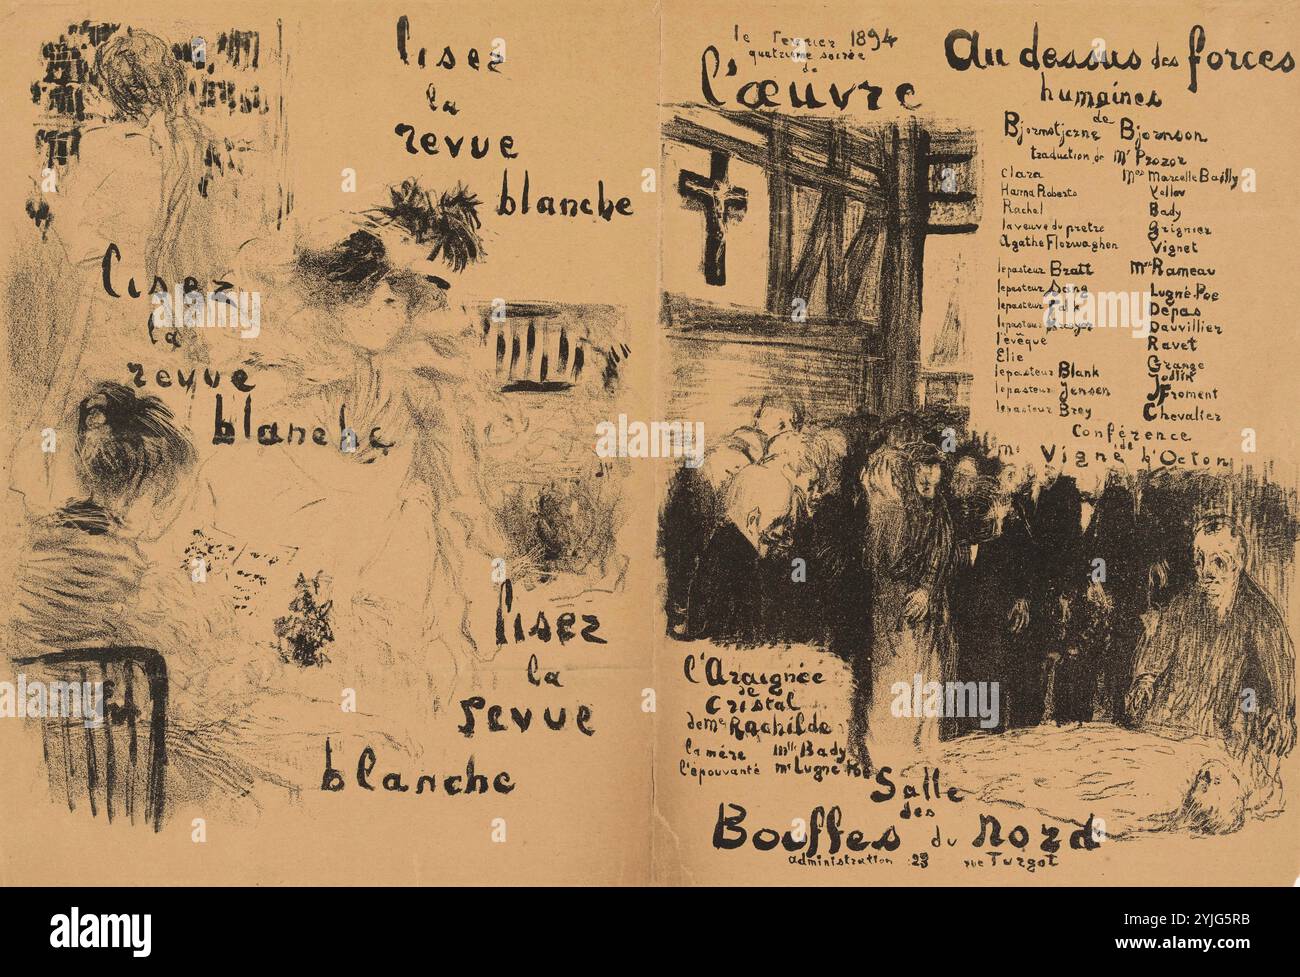 lisez
la
revue
blanche
lisez
la
revue
blanche
lisez
la
revue
blanche
le février 1894
quatrième soirée
de
l'œuvre
Au dessus des forces
humaines
de
Bjornstjerne Bjornson
traduction de Mr Prozor
Clara Mmes Marcelle Bailly
Hanna Roberts
Rachel Bady
la veuve du pretre Grignier
Agathe Vignet
le pasteur Bratt Mrs Rameau
le pasteur Sang Lugné-Poe
le pasteur Falk Depas
le pasteur Dauvillier
l'évêque Ravet
Elie Grange
le pasteur Blank
le pasteur Jensen Froment
le pasteur Brey Chevalier
Conférence
de
Mr Vigné d'Octon
l'Araignée
de
Cristal
de Me Rachilde
la mère Mlle Bady
l'épouvanté Mr Lugné Poe
Salle
des
Bouffes du Nord
administration 23 rue Turgot
alamy
Image ID: 2YJG5RB
www.alamy.com